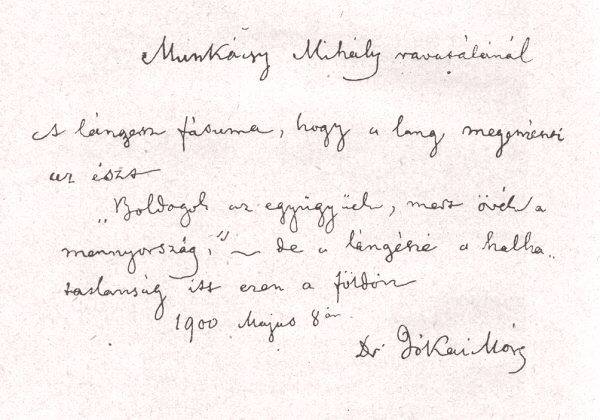 Munkácsy Mihály ravatalánál
A lángesz fátuma, hogy a lang megemészti
az észt
„Boldogok az együgyűek, mert övék a
mennyország," — de a lángészé a halha„
tatlanság itt ezen a földön
1900 Május 8án
Dr Jókai Mór